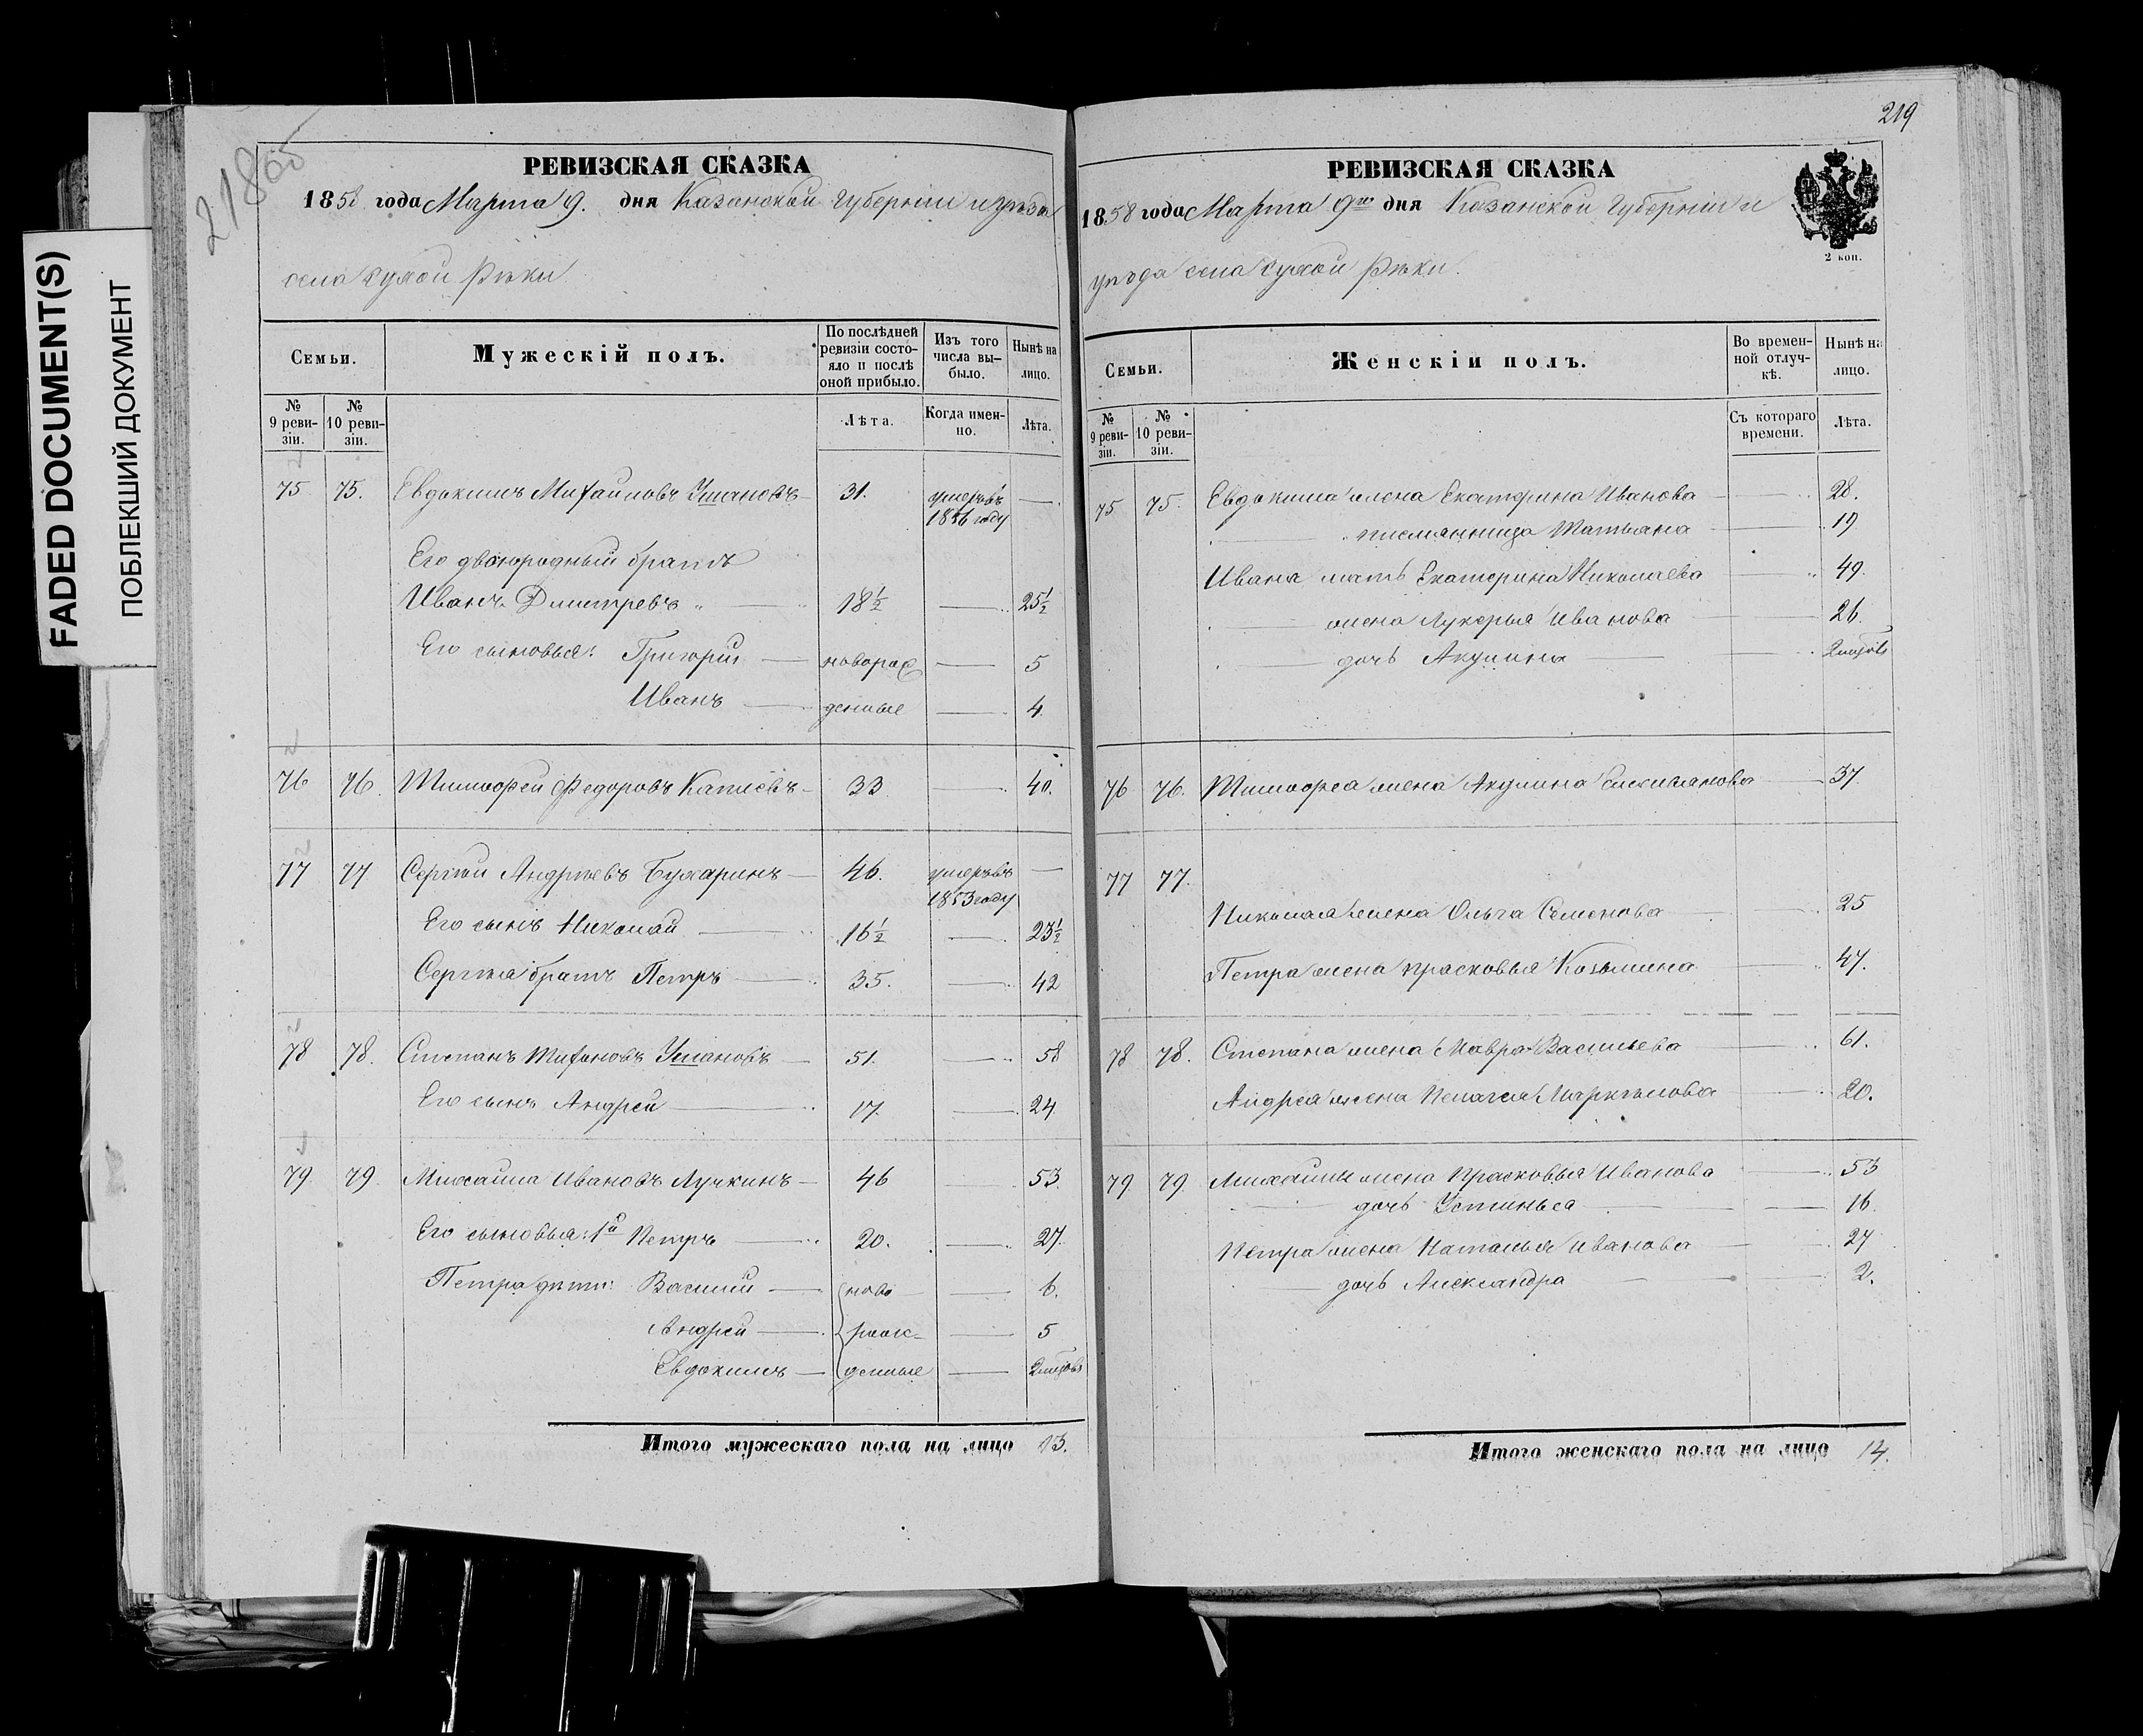 FADED DOCUMENT(S)
ПОБЛЕКШИЙ ДОКУМЕНТ
218об
РЕВИЗСКАЯ СКАЗКА
1858 года Марта 9. дня Казанской Губерніи и уѣзда
села Сухой Рѣки
Семьи.
Мужескій полъ.
По послѣдней ревизіи состояло и послѣ оной прибыло.
Изъ того числа выбыло.
Нынѣ на лицо.
№ 9 ревизіи.
№ 10 ревизіи.
Лѣта.
Когда именно.
Лѣта.
75 75. Евдокимъ Михайловъ Ушановъ 31. умеръвъ 1856 году —
Его двоюродный братъ
Иванъ Дмитревъ 18½ — 25½
Его сыновья: Григорий новорож — 5
Иванъ денные — 4.
76 76. Тимофей Федоровъ 33 — 40.
77 77 Сергѣй Андреевъ Бухаринъ 46. умеръвъ 1853 году —
Его сынъ Николай 16½ — 23½
Сергѣя братъ Петръ 35. — 42
78 78. Степанъ Тихоновъ Ушановъ 51. — 58
Его сынъ Андрей 17. — 24
79. 79 Михайла Ивановъ Лучкинъ 46 — 53.
Его сыновья: 1й Петръ 20. — 27.
Петра дѣти: Василий ново — 6.
Андрей рож- — 5
Евдокимъ денные — 2 мѣсов
Итого мужескаго пола на лицо 13.
219
РЕВИЗСКАЯ СКАЗКА
1858 года Марта 9го дня Казанской Губерніи и
уѣзда села Сухой Рѣки.
2 коп.
Семьи.
Женскій полъ.
Во временной отлучкѣ.
Нынѣ на лицо.
№ 9 ревизіи.
№ 10 ревизіи.
Съ котораго времени.
Лѣта.
75 75. Евдокима жена Екатерина Иванова — 28.
— племянница Татьяна — 19
Ивана мать Екатерина Николаева — 49.
— жена Лукерья Иванова — 26.
— дочь Акулина — 2 мѣсов
76 76. Тимофея жена Акулина — 37.
77 77.
Николая жена Ольга Семенова — 25
Петра жена Прасковья Козьмина — 47.
78 78. Степана жена Мавра Васильева — 61.
Андрея жена Пелагея Маркелова — 20.
79 79. Михайлы жена Прасковья Иванова — 53
— дочь Устинья — 16.
Петра жена Наталья Иванова — 27
— дочь Александра — 2.
Итого женскаго пола на лицо 14.